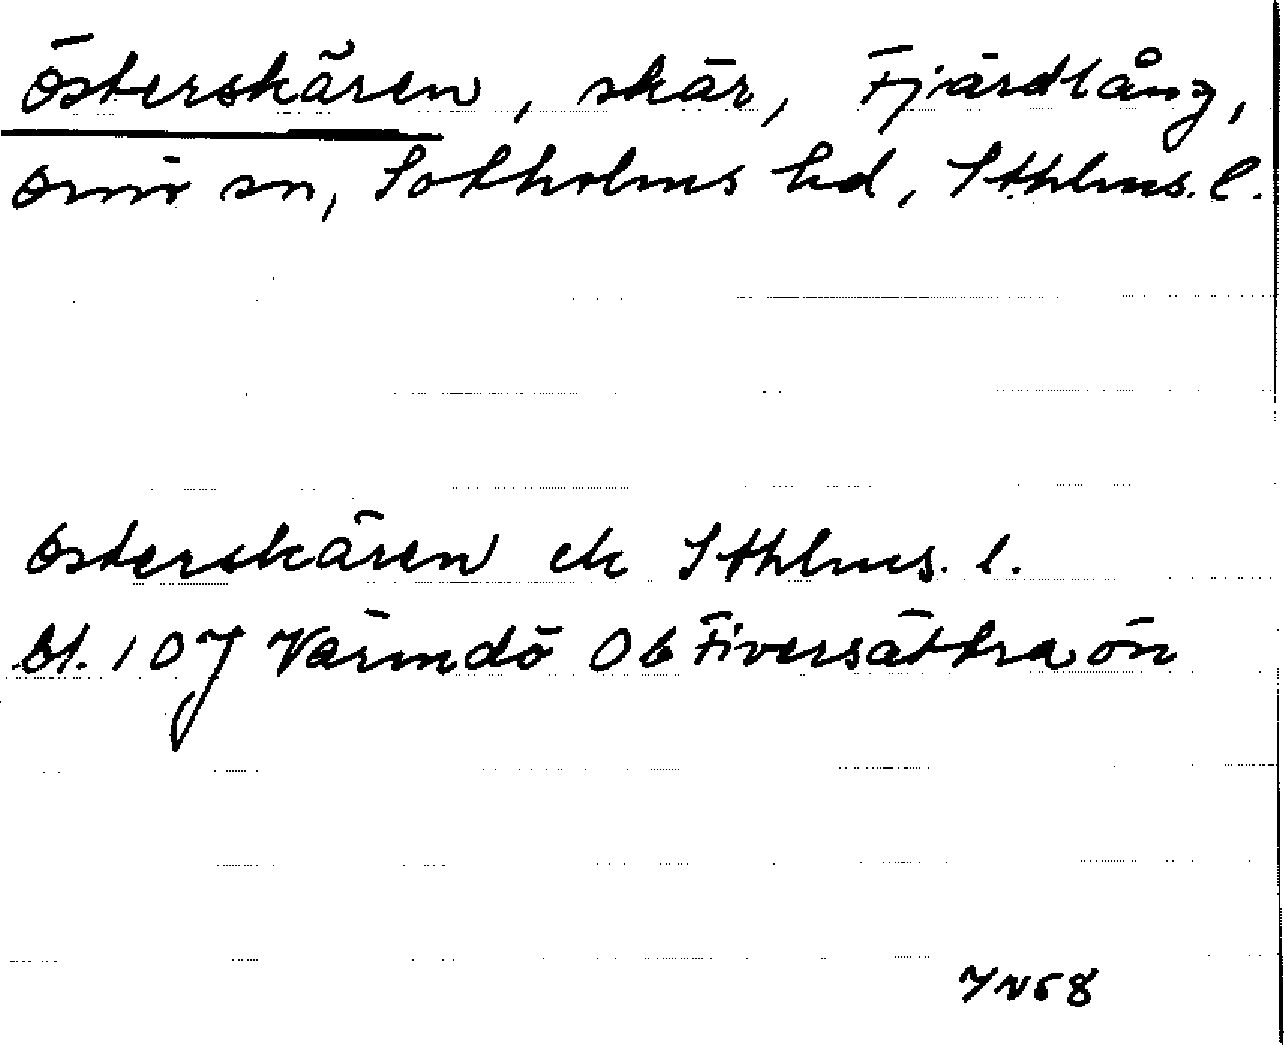 Österskären, skär, Fjärdlång,
Ornö sn, Sotholms hd, Sthlms. l.
Österskären ek Sthlms. l.
bl. 107 Värmdö Ob Fiversättraön